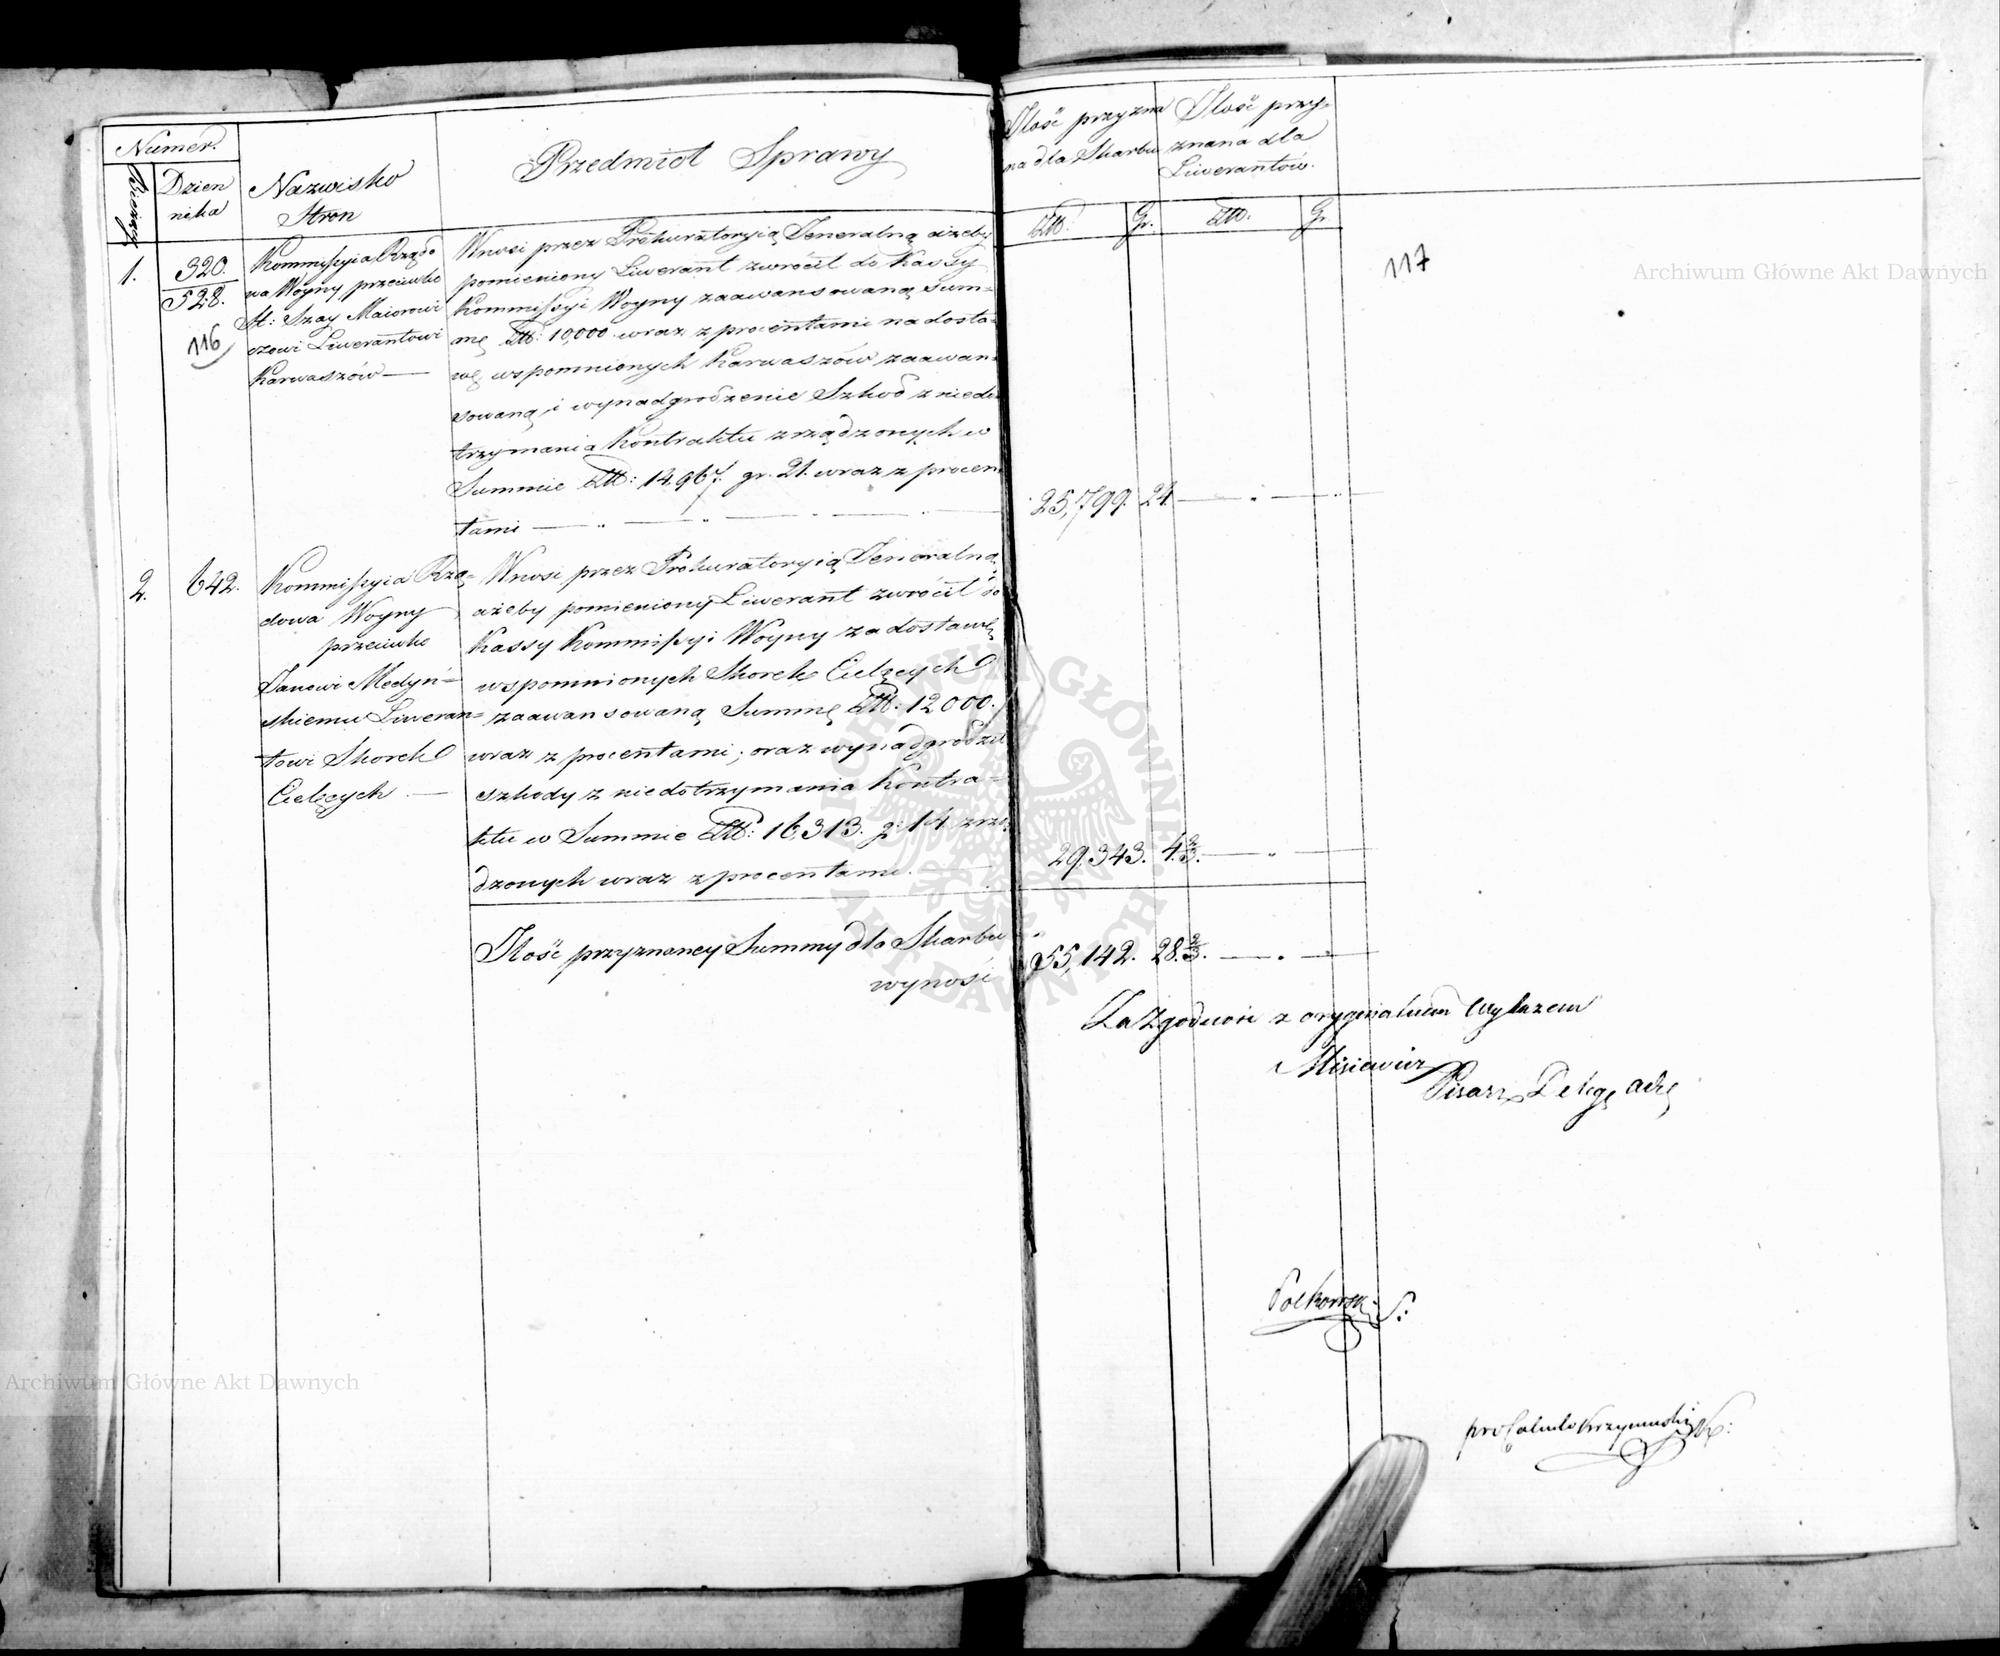 Numer.
Bieżący
Dzien
nika
Nazwisko
Stron
Przedmiot Sprawy
Ilość przyzna
na dla Skarbu
Ilość przy-
znana dla
Liwerantów.
Złł.
Gr.
Złł.
Gr.
117
1.
320.
528.
116
Kommissyia Rządo
wa Woyny przeciwko
St: Szay Maiorowi
czowi Liwerantowi
Karwaszów —
Wnosi przez Prokuratoryią Jeneralną ażeby
pomieniony Liwerant zwrócił do Kassy
Kommissyi Woyny zaawansowaną Sum-
mę Złł: 10,000 wraz z procentami na dosta-
wę wspomnionych Karwaszów zaawan-
sowaną, i wynadgrodzenie Szkod z niedo
trzymania Kontraktu zrządzonych w
Summie Złł: 14,967. gr. 21. wraz z procen
tami — " — " — " — " —
25,799. 24. — " — "
2.
642.
Kommissyia Rzą-
dowa Woyny
przeciwko
Janowi Medyń-
skiemu Liweran-
towi Skorek
Cielęcych —
Wnosi przez Prokuratoryią Jeneralną,
ażeby pomieniony Liwerant zwrócił do
Kassy Kommissyi Woyny za dostawę
wspomnionych Skorek Cielęcych
zaawansowaną Summę Złł: 12000.
wraz z procentami; oraz wynadgrodził
szkody z niedotrzymania Kontra-
ktu w Summie Złł: 16,313. g: 14 zrzą
dzonych wraz z procentami.
29,343. 4 2/3. — " —
Ilość przyznaney Summy dla Skarbu
wynosi
55,142. 28 2/3. — " — "
Za Zgodność z oryginalnem Wykazem
Misiewicz
Pisarz Delegacyi
Archiwum Główne Akt Dawnych
Archiwum Główne Akt Dawnych
ARCHIWUM GŁÓWNE AKT DAWNYCH